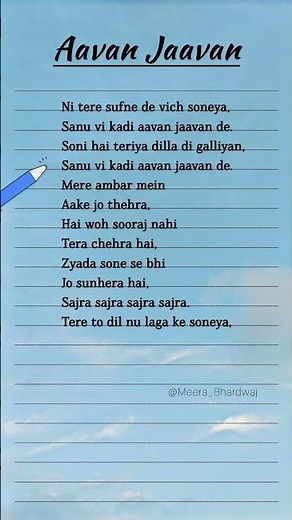 Aavan Jaavan
Ni tere sufne de vich soneya,
Sanu vi kadi aavan jaavan de.
Soni hai teriya dilla di galliyan,
Sanu vi kadi aavan jaavan de.
Mere ambar mein
Aake jo thehra,
Hai woh sooraj nahi
Tera chehra hai,
Zyada sone se bhi
Jo sunhera hai,
Sajra sajra sajra sajra.
Tere to dil nu laga ke soneya,
@Meera_Bhardwaj